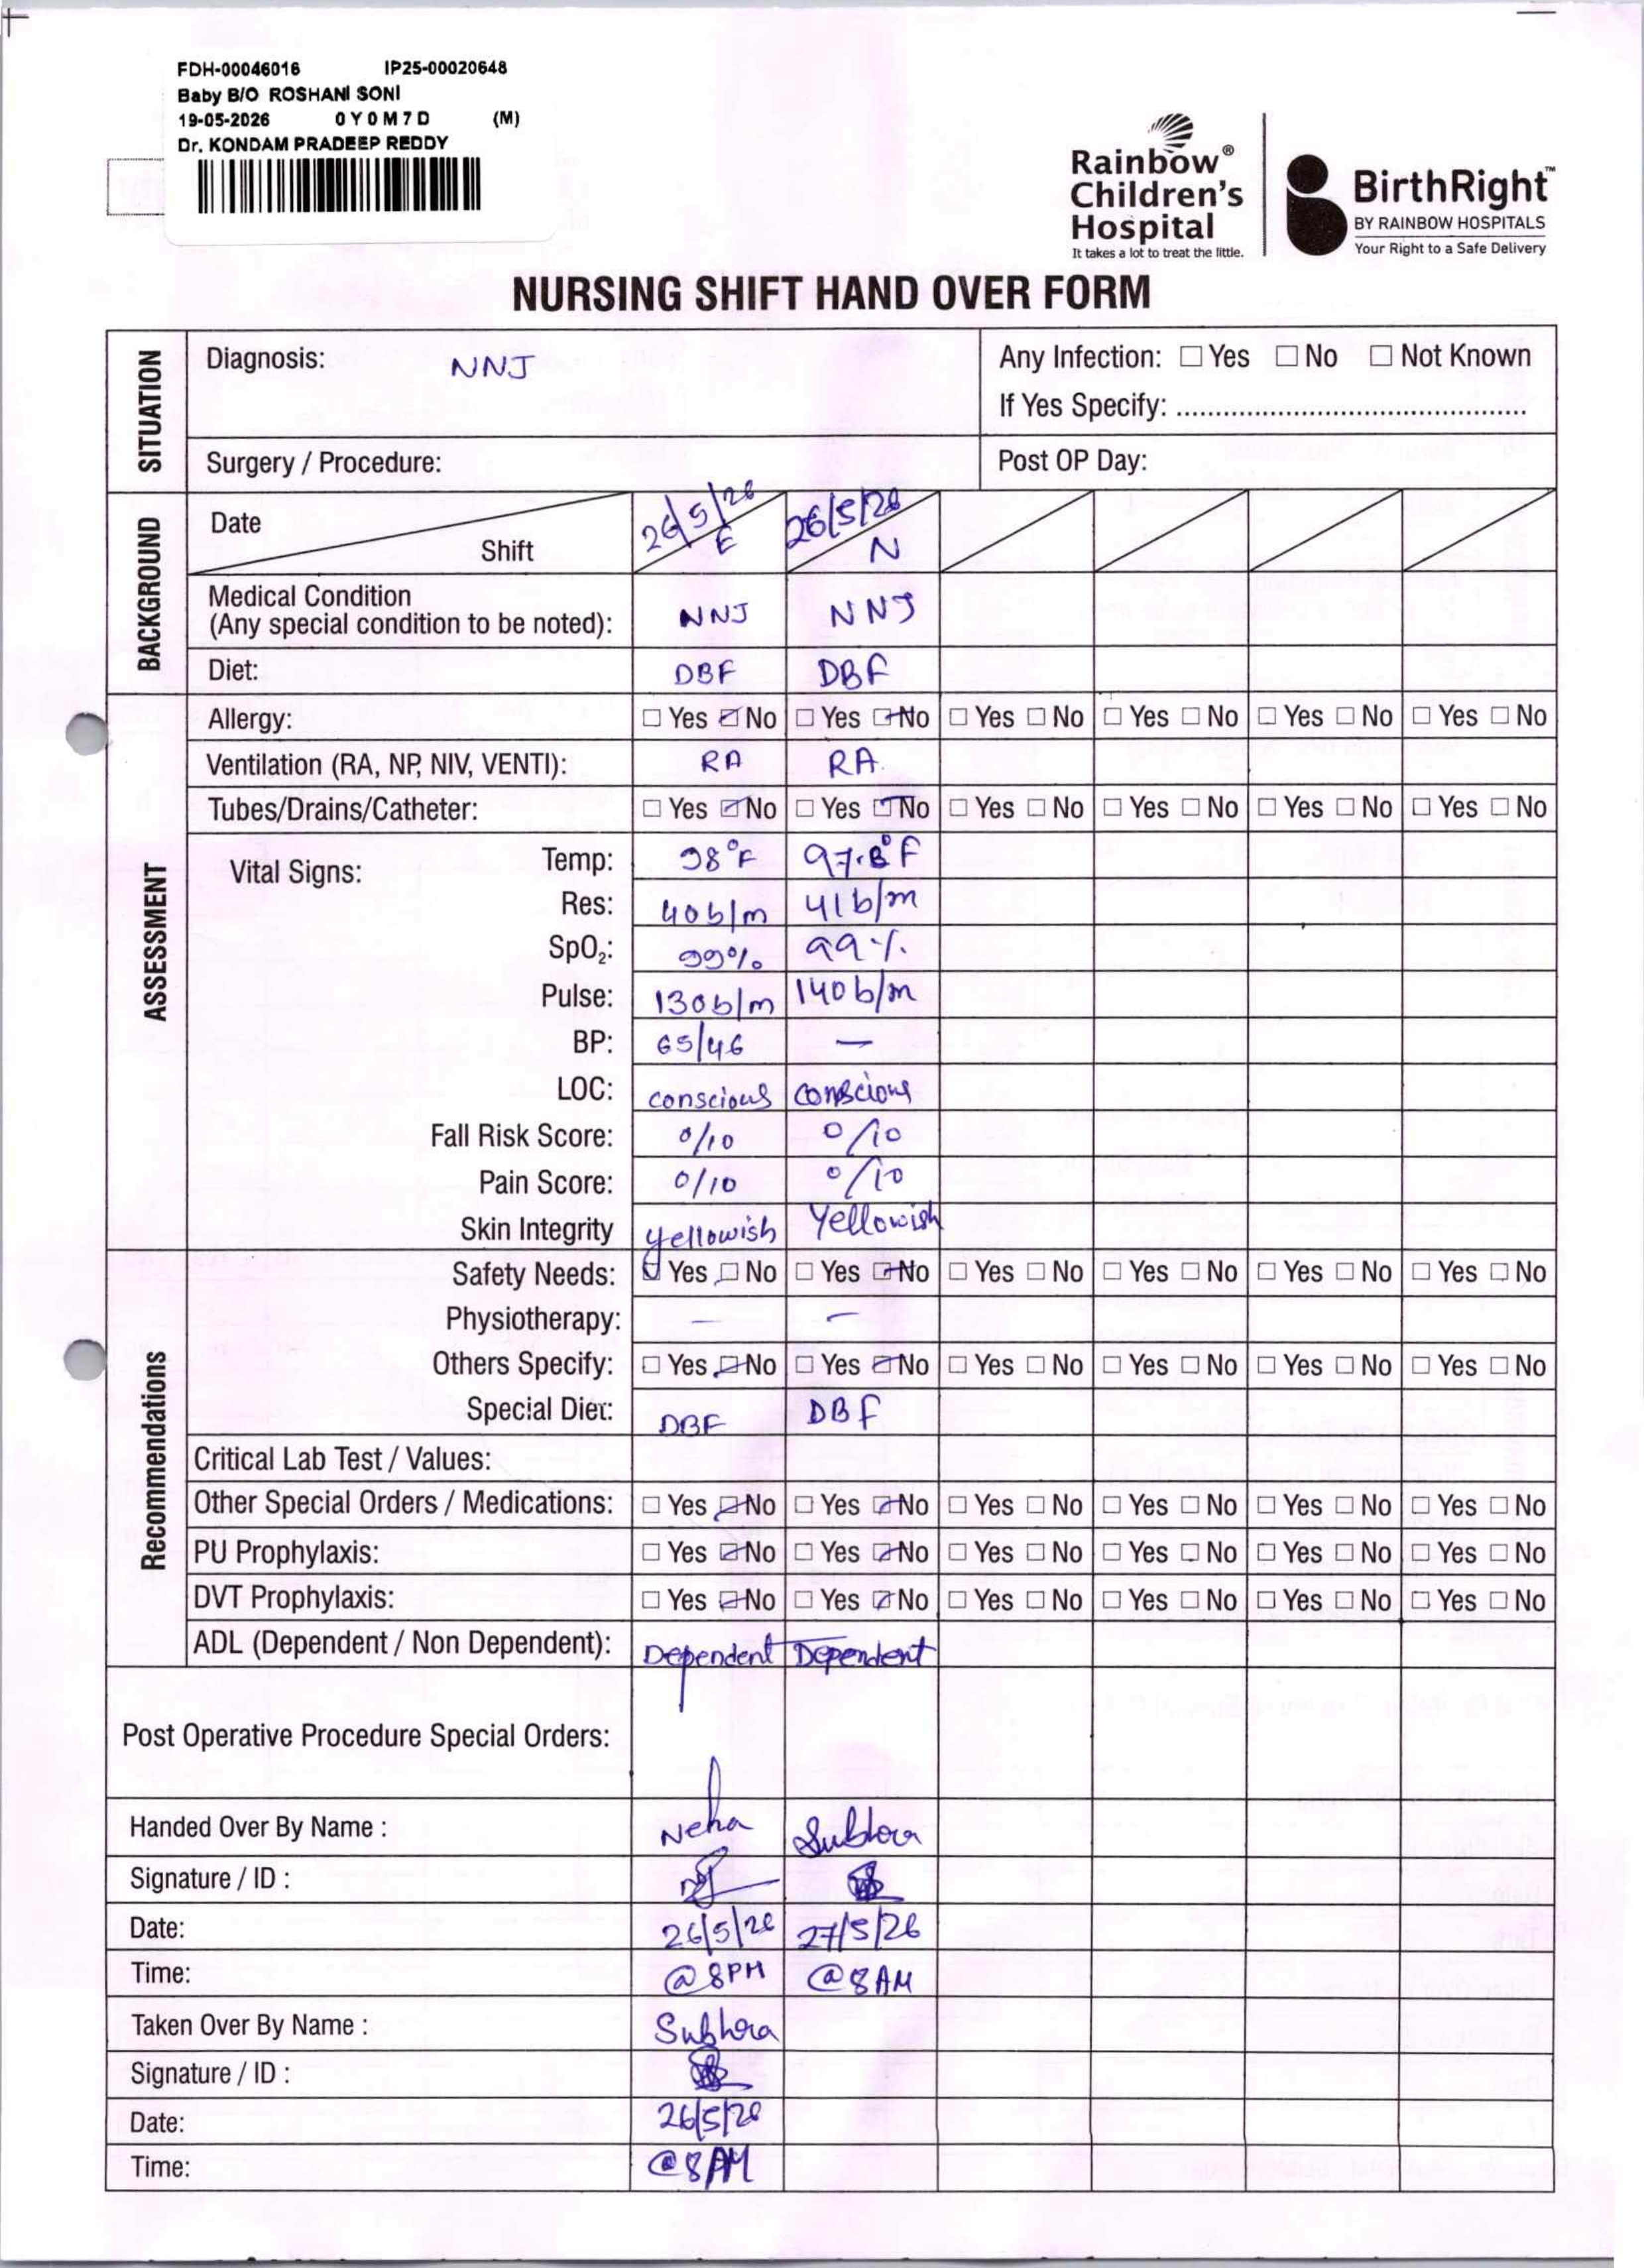 FDH-00046016 IP25-00020648
Baby B/O ROSHANI SONI
19-05-2026 0Y0M7D (M)
Dr. KONDAM PRADEEP REDDY
Rainbow®
Children's
Hospital
It takes a lot to treat the little.
BirthRight™
BY RAINBOW HOSPITALS
Your Right to a Safe Delivery
NURSING SHIFT HAND OVER FORM
SITUATION
Diagnosis: NNJ Any Infection: ☐ Yes ☐ No ☐ Not Known
If Yes Specify: ..............................................
Surgery / Procedure: Post OP Day:
BACKGROUND
Date 26/5/26 26/5/26
Shift E N
Medical Condition
(Any special condition to be noted): NNJ NNJ
Diet: DBF DBF
ASSESSMENT
Allergy: ☐ Yes ☑ No ☐ Yes ☑ No ☐ Yes ☐ No ☐ Yes ☐ No ☐ Yes ☐ No ☐ Yes ☐ No
Ventilation (RA, NP, NIV, VENTI): RA RA
Tubes/Drains/Catheter: ☐ Yes ☑ No ☐ Yes ☑ No ☐ Yes ☐ No ☐ Yes ☐ No ☐ Yes ☐ No ☐ Yes ☐ No
Vital Signs: Temp: 98°F 97.8°F
Res: 40b/m 41b/m
SpO₂: 99% 99%
Pulse: 130b/m 140b/m
BP: 65/46 —
LOC: conscious conscious
Fall Risk Score: 0/10 0/10
Pain Score: 0/10 0/10
Skin Integrity yellowish Yellowish
Recommendations
Safety Needs: ☑ Yes ☐ No ☐ Yes ☑ No ☐ Yes ☐ No ☐ Yes ☐ No ☐ Yes ☐ No ☐ Yes ☐ No
Physiotherapy: — —
Others Specify: ☐ Yes ☑ No ☐ Yes ☑ No ☐ Yes ☐ No ☐ Yes ☐ No ☐ Yes ☐ No ☐ Yes ☐ No
Special Diet: DBF DBF
Critical Lab Test / Values:
Other Special Orders / Medications: ☐ Yes ☑ No ☐ Yes ☑ No ☐ Yes ☐ No ☐ Yes ☐ No ☐ Yes ☐ No ☐ Yes ☐ No
PU Prophylaxis: ☐ Yes ☑ No ☐ Yes ☑ No ☐ Yes ☐ No ☐ Yes ☐ No ☐ Yes ☐ No ☐ Yes ☐ No
DVT Prophylaxis: ☐ Yes ☑ No ☐ Yes ☑ No ☐ Yes ☐ No ☐ Yes ☐ No ☐ Yes ☐ No ☐ Yes ☐ No
ADL (Dependent / Non Dependent): Dependent Dependent
Post Operative Procedure Special Orders:
Handed Over By Name : Neha Subhra
Signature / ID :
Date: 26/5/26 27/5/26
Time: @8PM @8AM
Taken Over By Name : Subhra
Signature / ID :
Date: 26/5/26
Time: @8AM